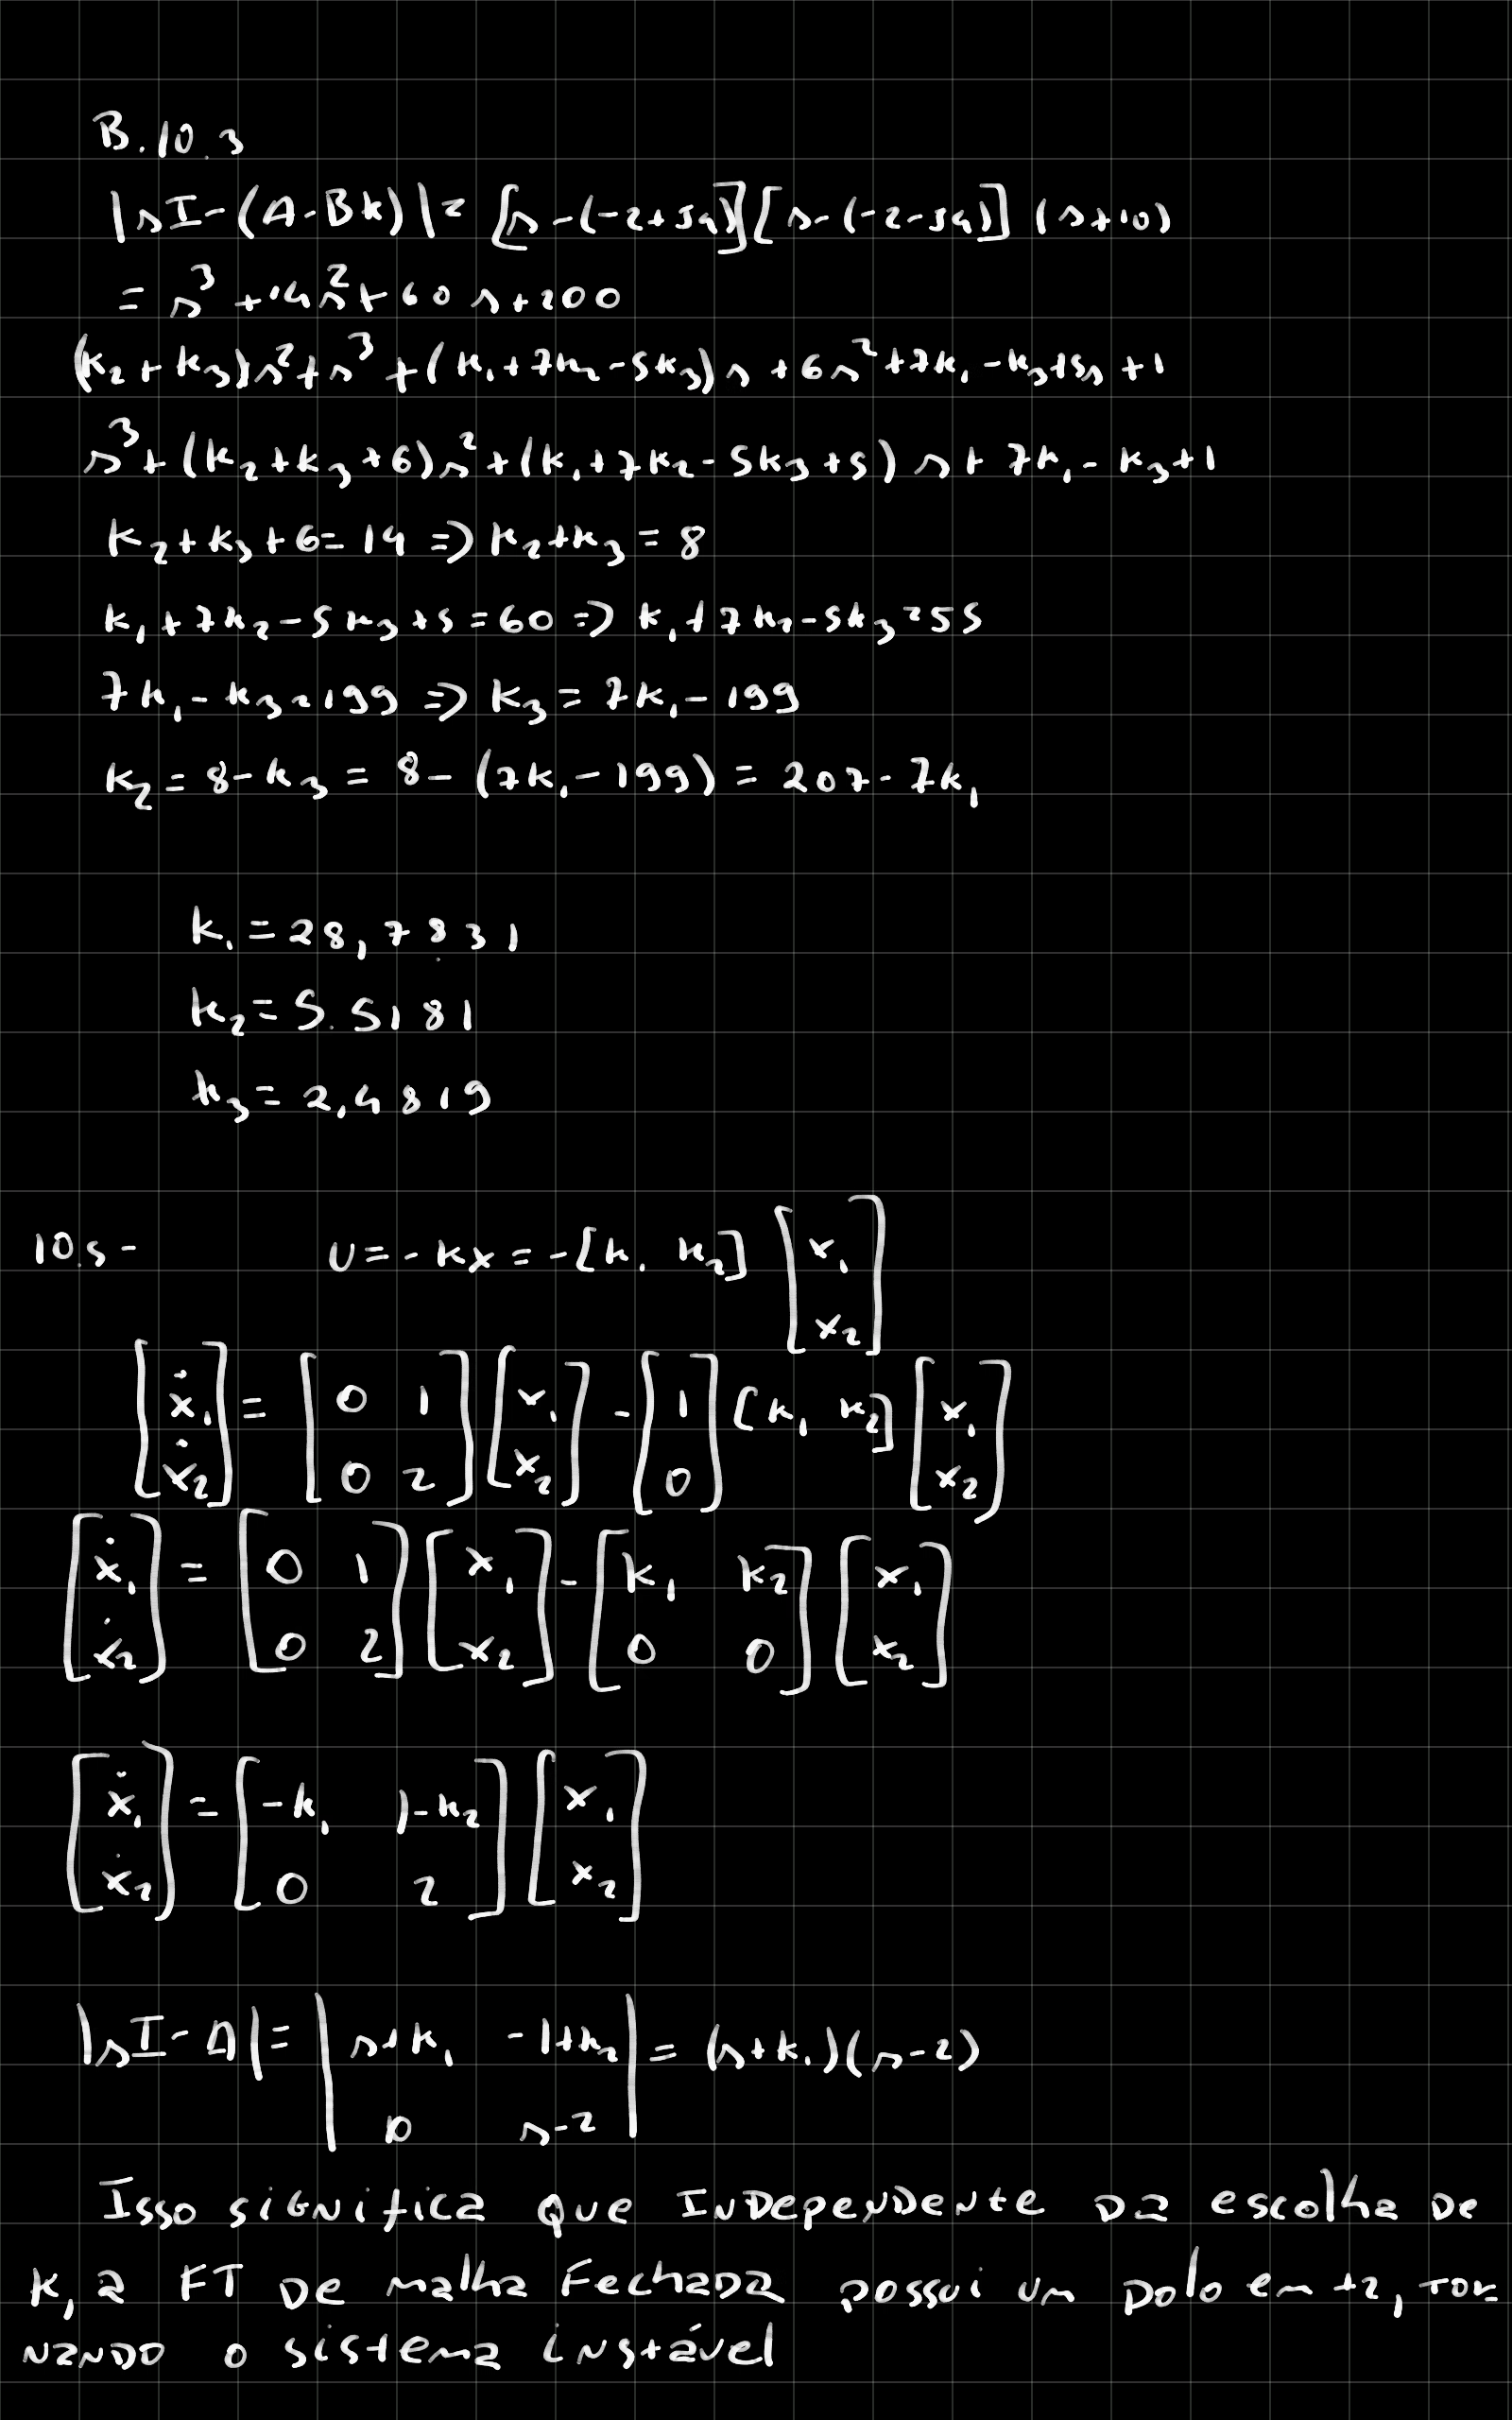 B.10.3
|sI-(A-BK)| = [s-(-2+j4)][s-(-2-j4)] (s+10)
= s³ + 14s² + 60s + 200
(k₂+k₃)s² + s³ + (k₁+7k₂-5k₃)s + 6s² + 7k₁ - k₃ + 5s + 1
s³ + (k₂+k₃+6)s² + (k₁+7k₂-5k₃+5)s + 7k₁ - k₃ + 1
k₂+k₃+6 = 14 => k₂+k₃ = 8
k₁+7k₂-5k₃+5 = 60 => k₁+7k₂-5k₃ = 55
7k₁-k₃ = 199 => k₃ = 7k₁-199
k₂ = 8-k₃ = 8-(7k₁-199) = 207-7k₁
k₁ = 28,7831
k₂ = 5.5181
k₃ = 2,4819
10.5- U = -Kx = -[k₁ k₂] [x₁; x₂]
[ẋ₁; ẋ₂] = [0 1; 0 2] [x₁; x₂] - [1; 0] [k₁ k₂] [x₁; x₂]
[ẋ₁; ẋ₂] = [0 1; 0 2] [x₁; x₂] - [k₁ k₂; 0 0] [x₁; x₂]
[ẋ₁; ẋ₂] = [-k₁ 1-k₂; 0 2] [x₁; x₂]
|sI-A| = |s+k₁ -1+k₂; 0 s-2| = (s+k₁)(s-2)
Isso significa que independente da escolha de
K, a FT de malha fechada possui um polo em +2, tor-
nando o sistema instável